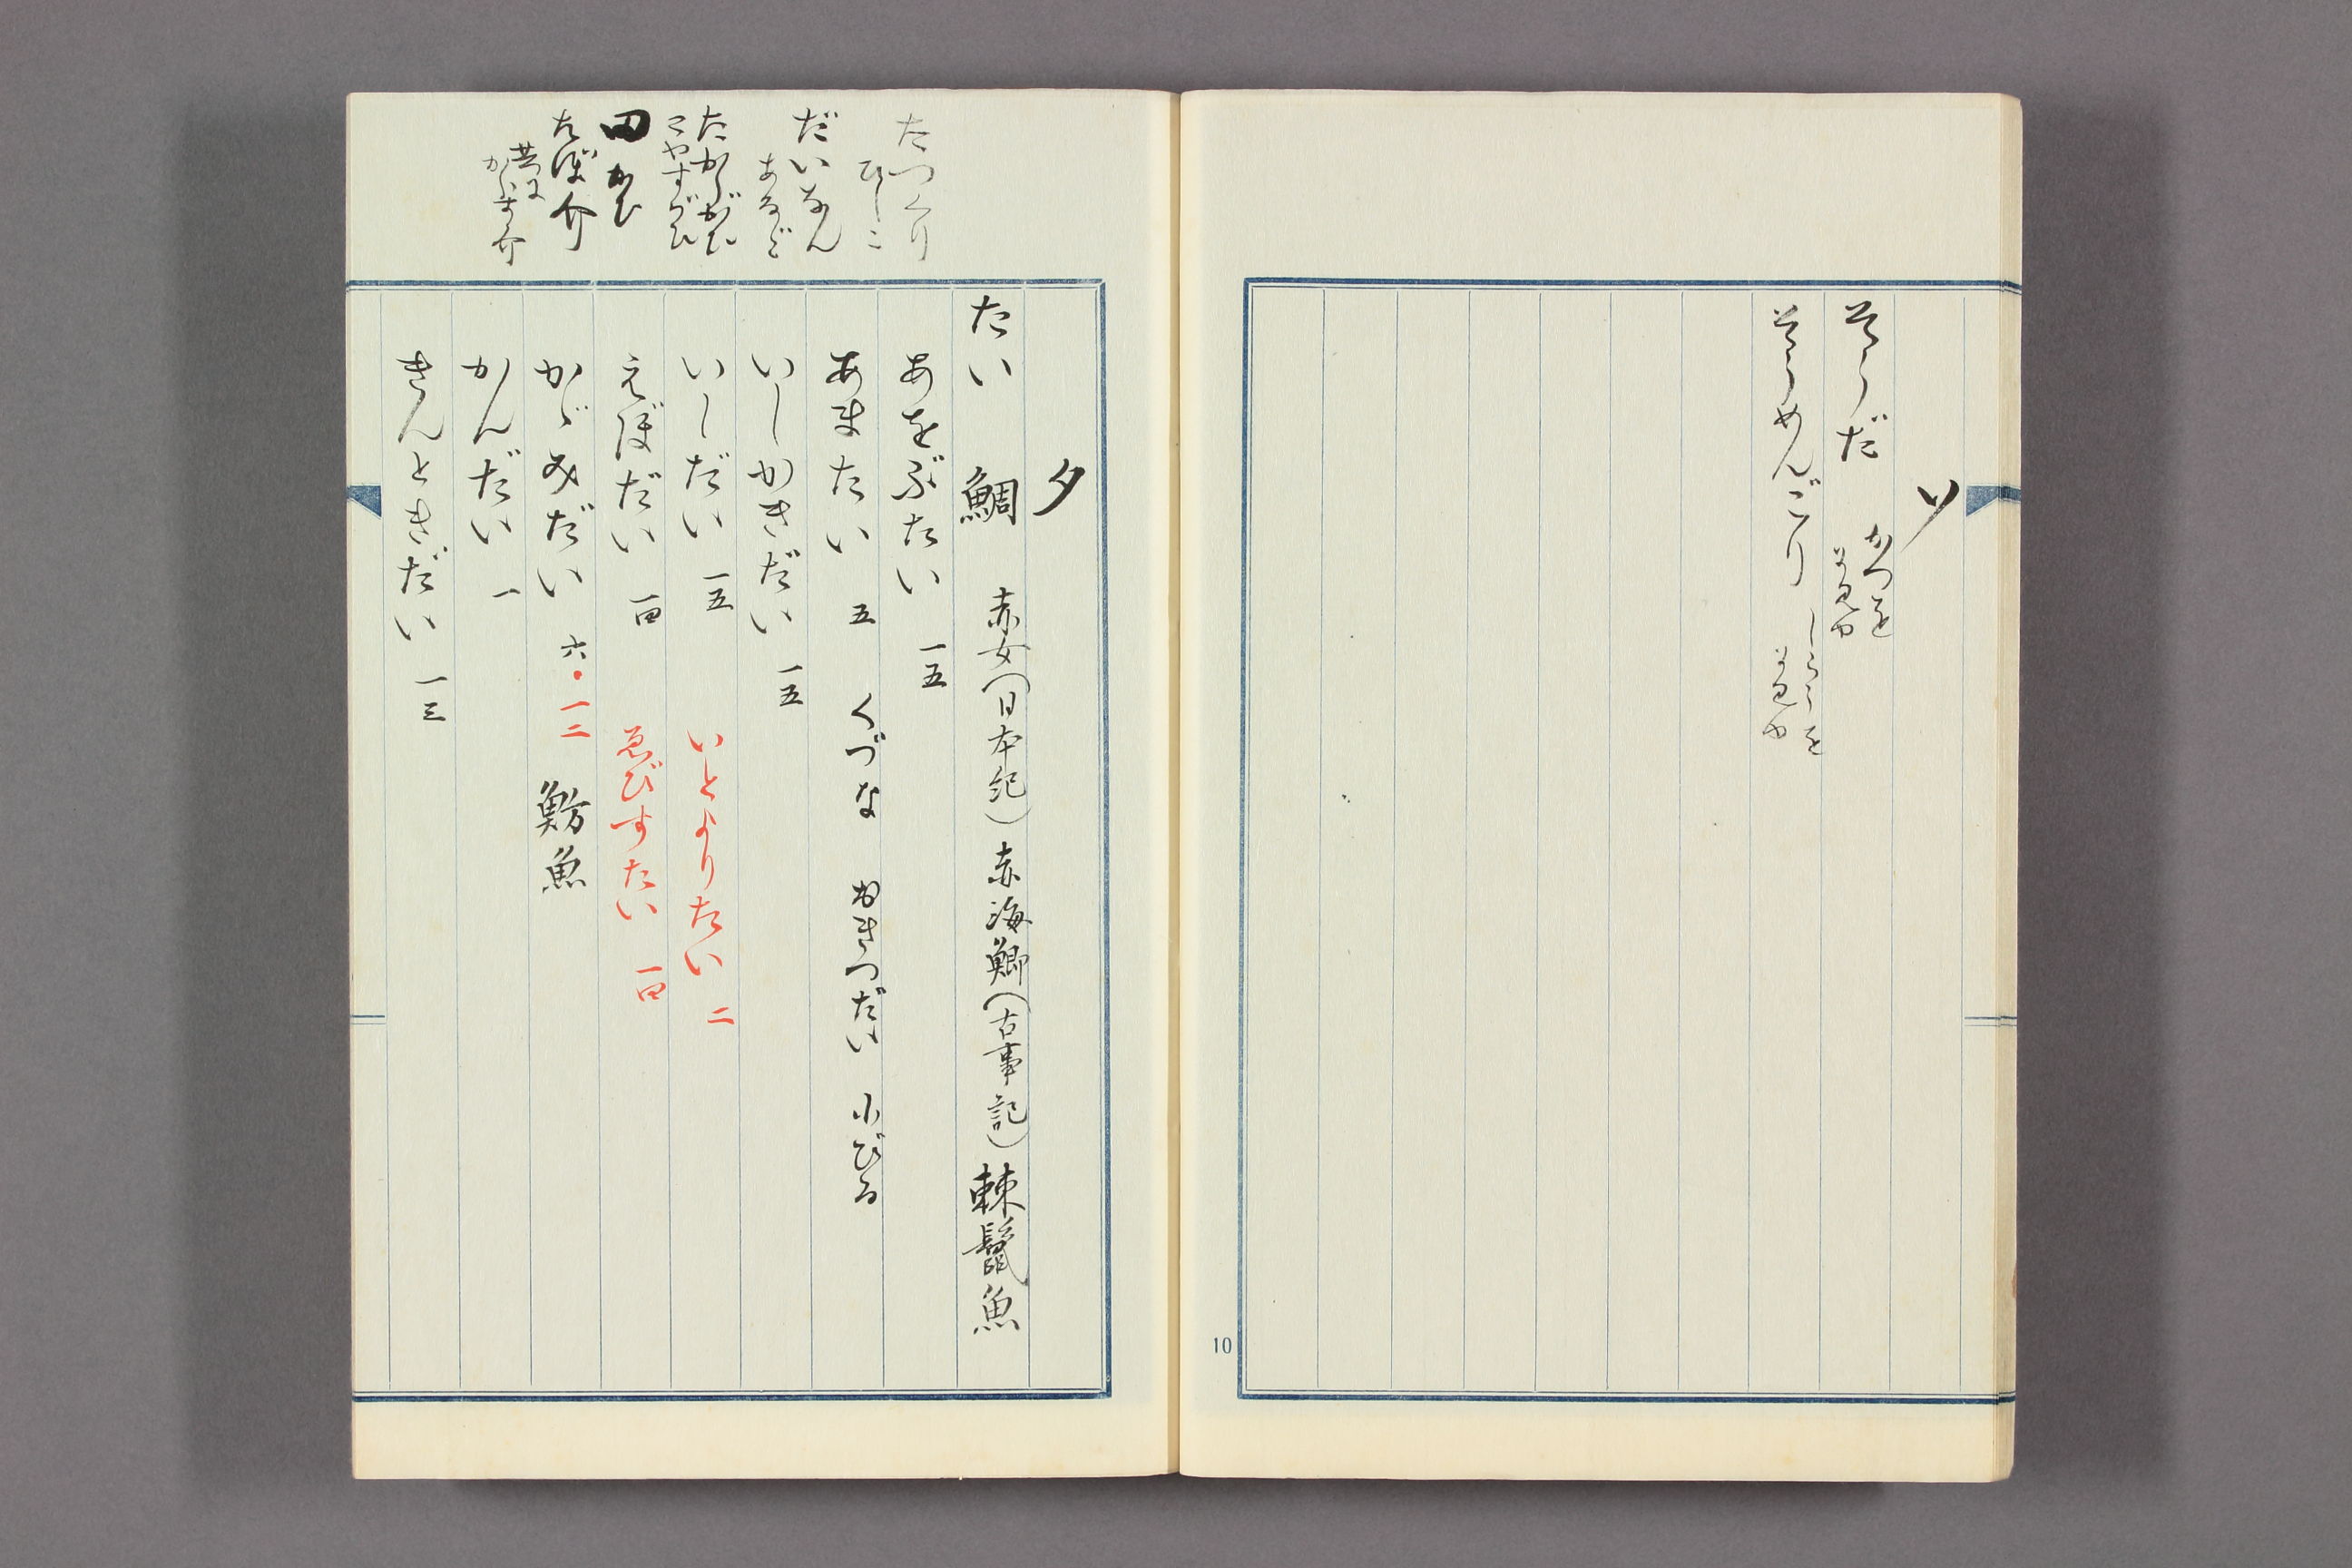 ソ
そうだ かつを を見よ
そうめんごり しらうを を見よ
10
たつくり
ひしこ
だいなん
あなご
たからがひ
こやすがひ
田かひ
たぼ介
タ
たい 鯛 赤女(日本紀)赤海鯽(古事記)棘鬣魚
あをぶたい 一五
あまたい 五 くづな おきつだい 小びる
いしかきだい 一五
いしだい 一五 いとよりたい 二
えぼだい 一四 ゑびすたい 一四
かゞみだい 六・一二 魴魚
かんだい 一
きんときだい 一三